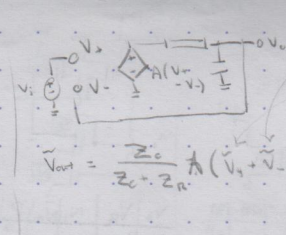 V+ Vo
Vi V- A(V+
-V-)
Ṽout = Zc / Zc + ZR A (Ṽ+ + Ṽ-